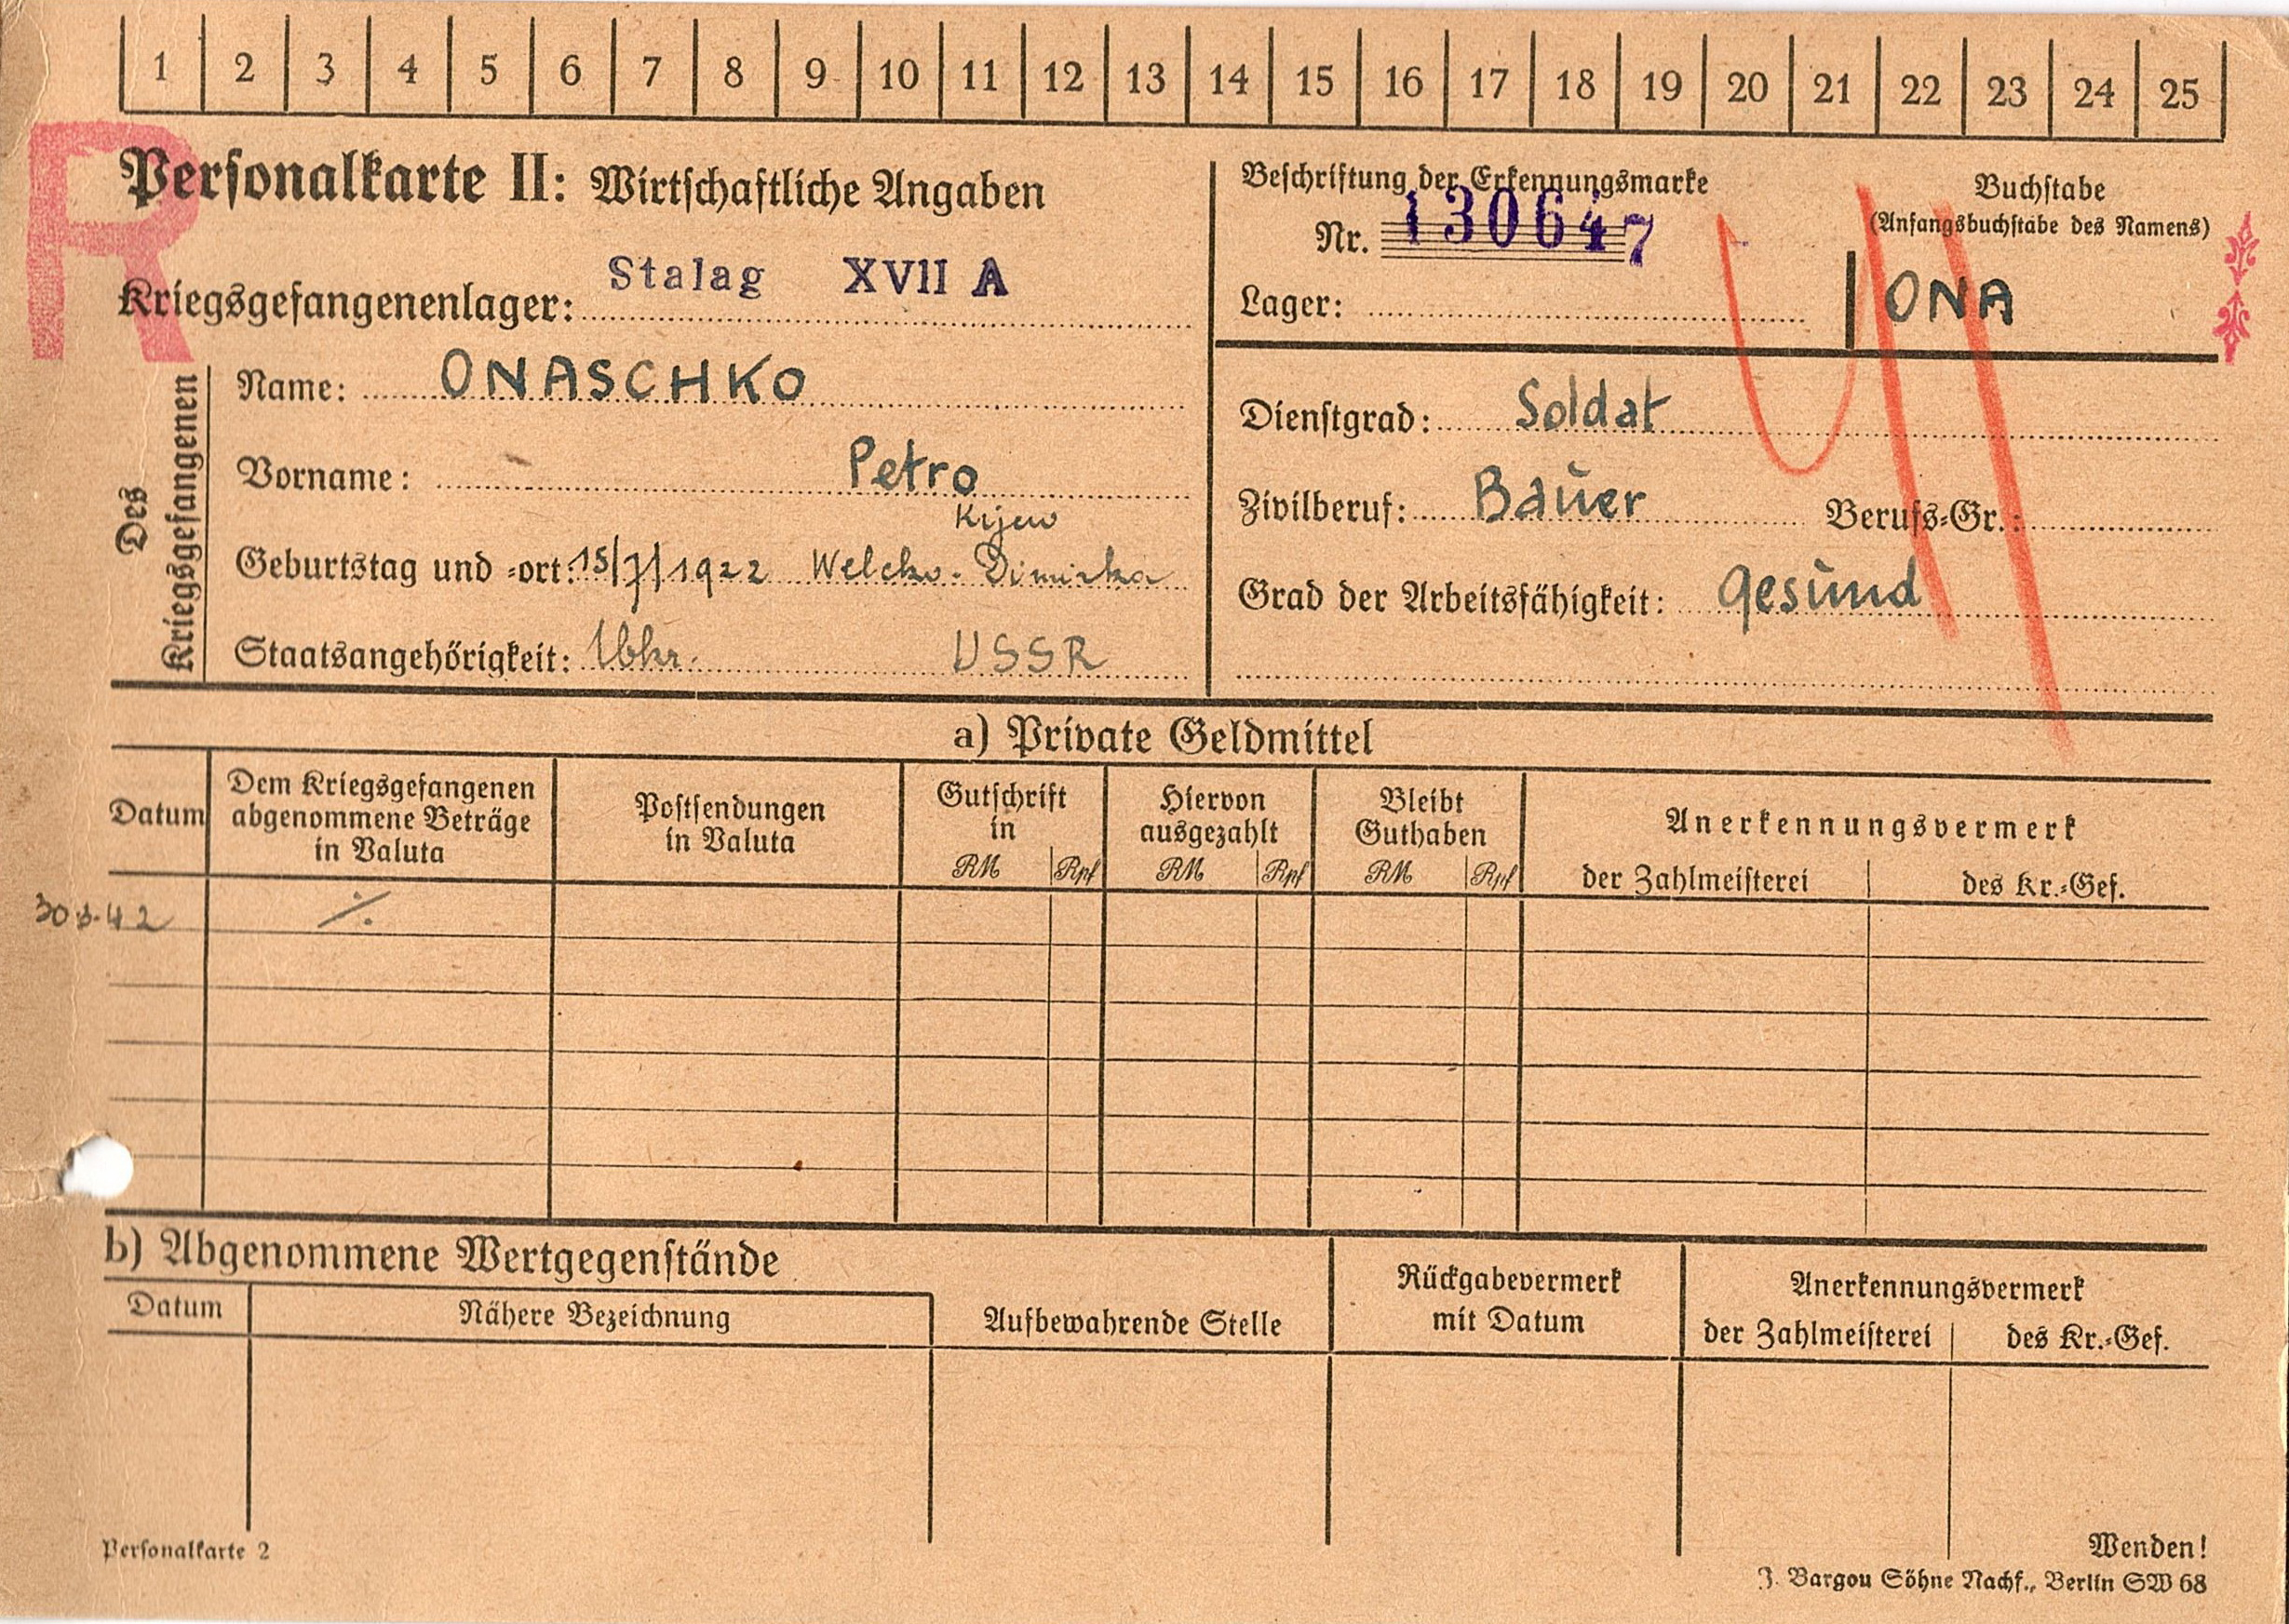 1 2 3 4 5 6 7 8 9 10 11 12 13 14 15 16 17 18 19 20 21 22 23 24 25
R
Personalkarte II: Wirtschaftliche Angaben
Kriegsgefangenenlager: Stalag XVII A
Beschriftung der Erkennungsmarke
Nr. 130647
Lager:
Buchstabe
(Anfangsbuchstabe des Namens)
ONA
Des Kriegsgefangenen
Name: ONASCHKO
Vorname: Petro
Kijew
Geburtstag und -ort: 15/7/1922 Welcko-Dimirka
Staatsangehörigkeit: Ukr. USSR
Dienstgrad: Soldat
Zivilberuf: Bauer Berufs-Gr.:
Grad der Arbeitsfähigkeit: gesund
a) Private Geldmittel
Datum
Dem Kriegsgefangenen
abgenommene Beträge
in Valuta
Postsendungen
in Valuta
Gutschrift
in
RM Rpf
Hiervon
ausgezahlt
RM Rpf
Bleibt
Guthaben
RM Rpf
Anerkennungsvermerk
der Zahlmeisterei des Kr.-Gef.
b) Abgenommene Wertgegenstände
Datum
Nähere Bezeichnung
Aufbewahrende Stelle
Rückgabevermerk
mit Datum
Anerkennungsvermerk
der Zahlmeisterei des Kr.-Gef.
Personalkarte 2
Wenden!
J. Bargou Söhne Nachf., Berlin SW 68